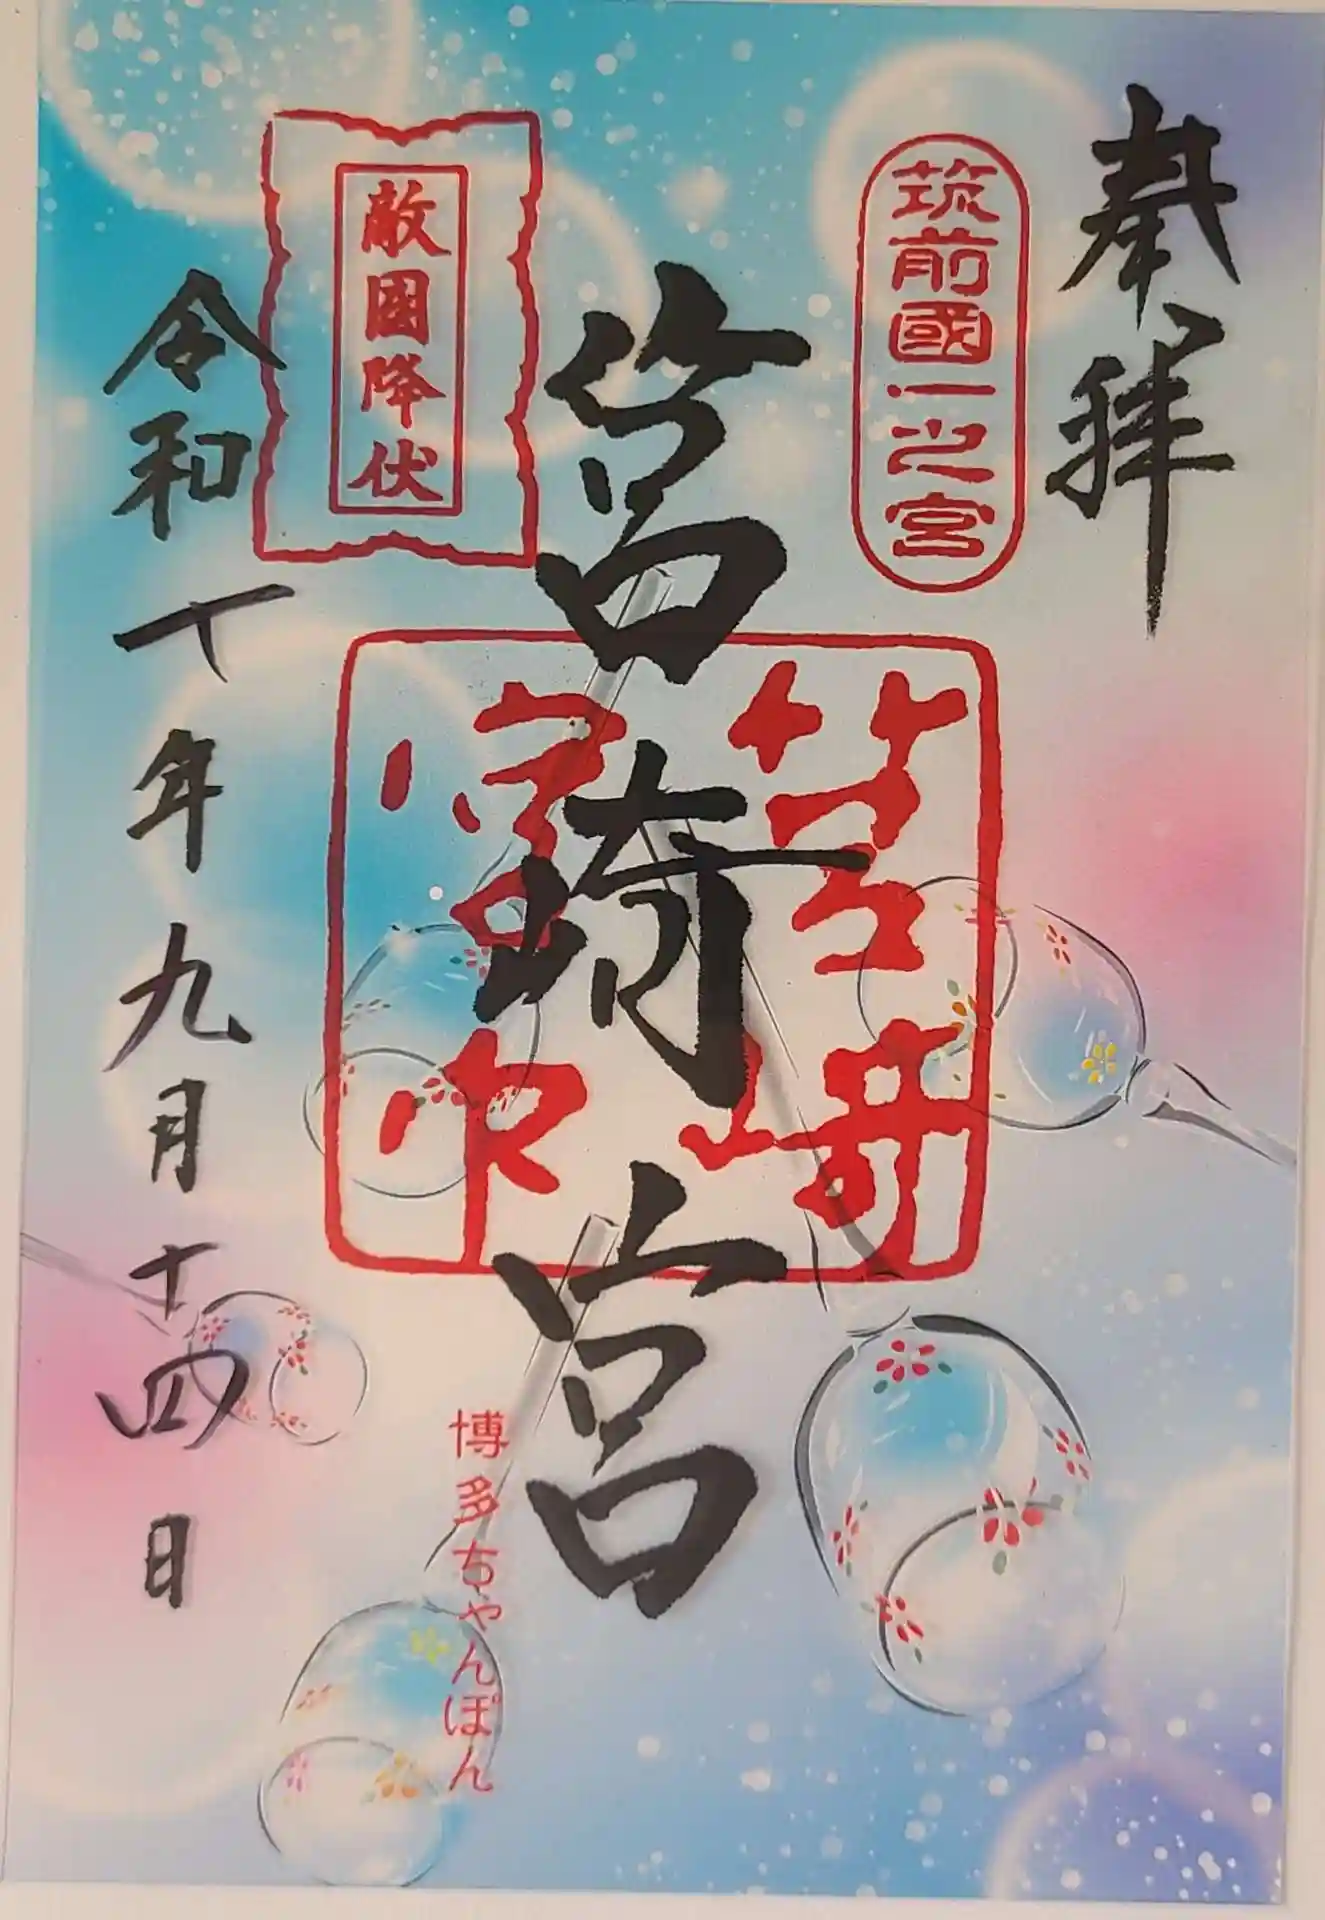 奉拝
筑前國一之宮
筥崎宮
筥崎
宮印
敵國降伏
博多ちゃんぽん
令和 年九月十四日